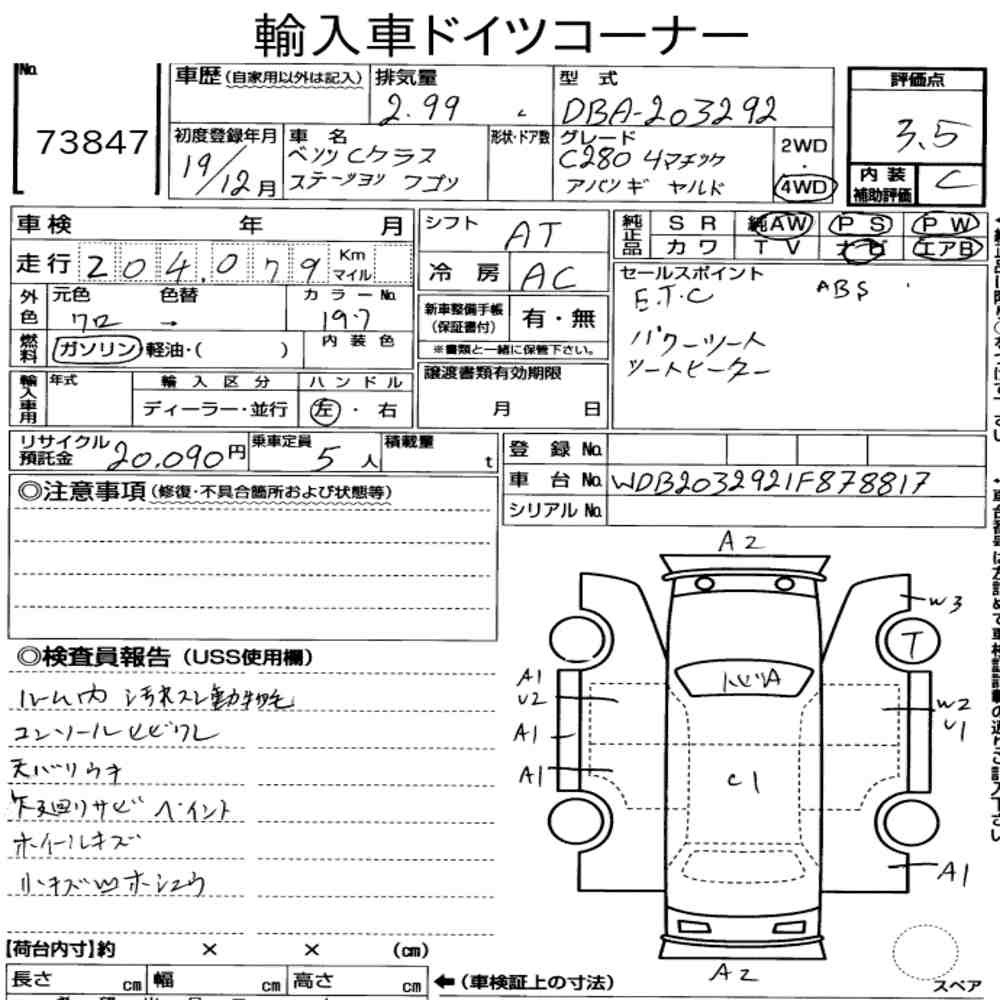 輸入車ドイツコーナー
No. 73847
車歴(自家用以外は記入)
排気量 2.99 L
型式 DBA-203292
評価点 3.5
内装補助評価 C
初度登録年月 19/12月
車名 ベンツ Cクラス
ステーツヨン ワゴン
形状・ドア数
グレード
C280 4マチック
アバンギャルド
2WD
・
4WD
車検 年 月
走行 204,079 Km マイル
シフト AT
冷房 AC
純正品 SR 純AW PS PW
カワ TV ナビ エアB
外色 元色 クロ → 色替
カラーNo. 197
燃料 ガソリン・軽油・( )
内装色
新車整備手帳(保証書付) 有・無
※書類と一緒に保管下さい。
セールスポイント
E.T.C ABS
パワーシート
シートヒーター
輸入車用 年式
輸入区分 ディーラー・並行
ハンドル 左・右
譲渡書類有効期限
月 日
リサイクル預託金 20,090円
乗車定員 5人
積載量 t
登録No.
車台No. WDB2032921F878817
シリアルNo.
◎注意事項(修復・不具合箇所および状態等)
◎検査員報告(USS使用欄)
ルーム内 汚れスレ動物毛
コンソールヒビワレ
天バリウキ
下廻りサビ ペイント
ホイールキズ
小キズ凹ホシユウ
A2
W3
T
A1
U2
トビツA
W2
U1
A1
A1
C1
A1
A2
スペア
【荷台内寸】約 × × (cm)
長さ cm 幅 cm 高さ cm
←(車検証上の寸法)